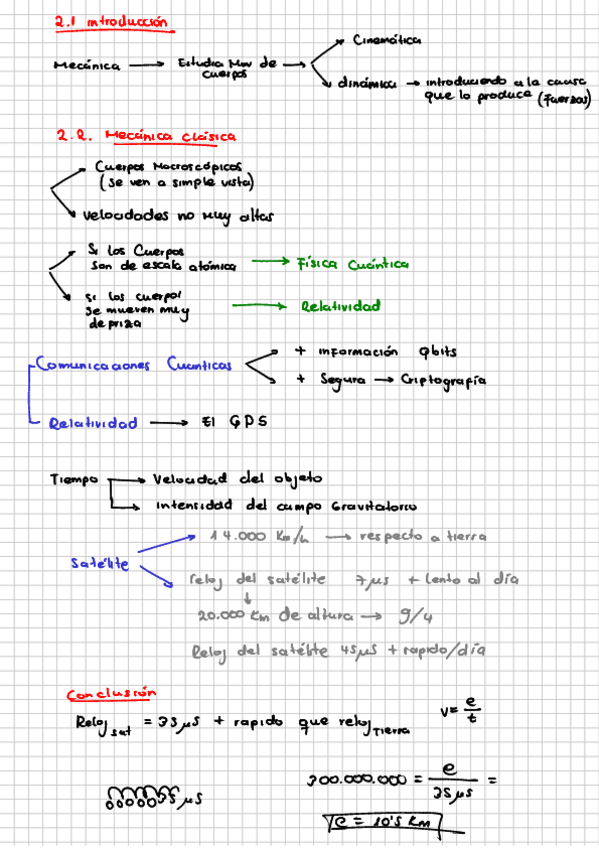 2.1 introducción
Cinemática
Mecánica → Estudia Mov de cuerpos →
dinámica → introduciendo a la causa
que lo produce (Fuerzas)
2.2. Mecánica Clásica
Cuerpos Macroscópicos
(Se ven a simple vista)
velocidades no muy altas
Si los Cuerpos
son de escala atómica → Física Cuántica
si los cuerpos
se mueven muy → Relatividad
de priza
Comunicaciones Cuánticas
+ información Qbits
+ Segura → Criptografía
Relatividad → El GPS
Tiempo → Velocidad del objeto
→ intensidad del campo Gravitatorio
14.000 Km/h → respecto a tierra
Satélite
reloj del satélite 7μs + lento al día
↓
20.000 Km de altura → g/4
Reloj del satélite 45μs + rapido/día
Conclusión
Reloj sat = 35μs + rapido que reloj Tierra
v = e/t
300.000.000 = e / 35μs =
e = 10'5 Km